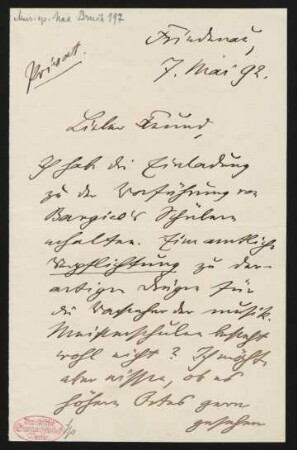 Mus. ep. Max Bruch 197
Privat.
Friedenau,
7. Mai 92.
Lieber Freund,
Ich habe die Einladung
zu der Vorführung von
Bargiel's Schülern
erhalten. Eine amtliche
Verpflichtung zu der-
artigen Dingen für
die Vorsteher der musik.
Meisterschulen besteht
wohl nicht? Ich möchte
aber wissen, ob es
höhern Ortes gern
gesehen